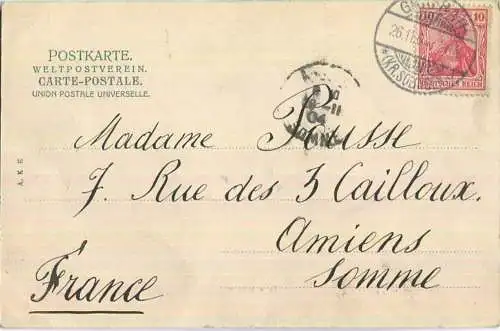 POSTKARTE.
WELTPOSTVEREIN.
CARTE-POSTALE.
UNION POSTALE UNIVERSELLE.
10
DEUTSCHES REICH
26.11
04
A. K. E
Madame Rousse
7. Rue des 3 Cailloux.
Amiens
Somme
France